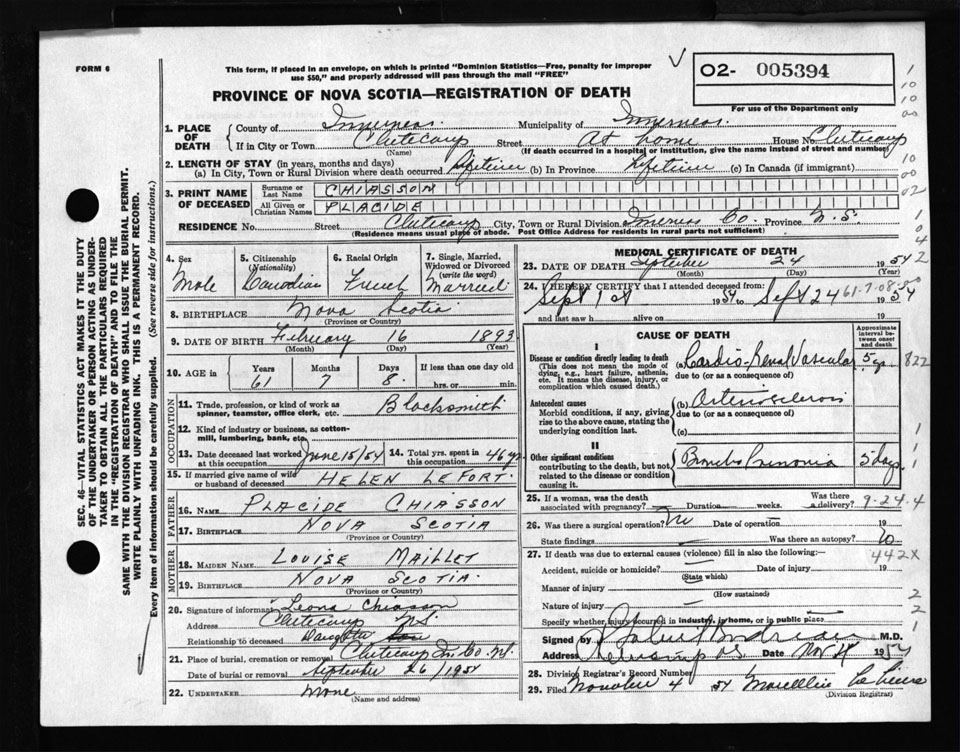 FORM 6
This form, if placed in an envelope, on which is printed "Dominion Statistics—Free, penalty for improper
use $50," and properly addressed will pass through the mail "FREE"
PROVINCE OF NOVA SCOTIA—REGISTRATION OF DEATH
O2- 005394
For use of the Department only
1. PLACE OF DEATH
County of Inverness Municipality of Inverness
If in City or Town Cheticamp Street At home House No. Cheticamp
(Name) (If death occurred in a hospital or institution, give the name instead of street and number)
2. LENGTH OF STAY (in years, months and days)
(a) In City, Town or Rural Division where death occurred Lifetime (b) In Province Lifetime (c) In Canada (if immigrant)
3. PRINT NAME OF DECEASED
Surname or Last Name CHIASSON
All Given or Christian Names PLACIDE
RESIDENCE No. Street Cheticamp City, Town or Rural Division Inverness Co. Province N.S.
(Residence means usual place of abode. Post Office Address for residents in rural parts not sufficient)
4. Sex
Male
5. Citizenship (Nationality)
Canadian
6. Racial Origin
French
7. Single, Married, Widowed or Divorced (write the word)
Married
8. BIRTHPLACE Nova Scotia
(Province or Country)
9. DATE OF BIRTH February 16 1893
(Month) (Day) (Year)
10. AGE in Years Months Days If less than one day old
61 7 8 hrs. or min.
OCCUPATION
11. Trade, profession, or kind of work as spinner, teamster, office clerk, etc. Blacksmith
12. Kind of industry or business, as cotton-mill, lumbering, bank, etc.
13. Date deceased last worked at this occupation June 15/54
14. Total yrs. spent in this occupation 46 yrs
15. If married give name of wife or husband of deceased HELEN LEFORT.
FATHER
16. NAME PLACIDE CHIASSON
17. BIRTHPLACE NOVA SCOTIA
(Province or Country)
MOTHER
18. MAIDEN NAME LOUISE MAILLET
19. BIRTHPLACE NOVA SCOTIA.
(Province or Country)
20. Signature of informant Leona Chiasson
Address Cheticamp N.S.
Relationship to deceased Daughter
21. Place of burial, cremation or removal Cheticamp In. Co. N.S.
Date of burial or removal September 26/1954
22. UNDERTAKER None
(Name and address)
MEDICAL CERTIFICATE OF DEATH
23. DATE OF DEATH September 24 1954
(Month) (Day) (Year)
24. I HEREBY CERTIFY that I attended deceased from:
Sept 1st 1954 to Sept 24 1954
61-7-08-
and last saw h alive on
CAUSE OF DEATH
Approximate interval between onset and death
I
Disease or condition directly leading to death
(This does not mean the mode of dying, e.g., heart failure, asthenia, etc. It means the disease, injury, or complication which caused death.)
(a) Cardio-Renal Vascular 5 yrs 822
due to (or as a consequence of)
Antecedent causes
Morbid conditions, if any, giving rise to the above cause, stating the underlying condition last.
(b) Arteriosclerosis
due to (or as a consequence of)
(c)
II
Other significant conditions
contributing to the death, but not related to the disease or condition causing it.
Broncho Pneumonia 5 days
25. If a woman, was the death associated with pregnancy? Duration weeks. Was there a delivery?
9-24-4
26. Was there a surgical operation? No Date of operation 19
State findings Was there an autopsy? No
442X
27. If death was due to external causes (violence) fill in also the following:—
Accident, suicide or homicide? Date of injury 19
(State which)
Manner of injury
(How sustained)
Nature of injury
Specify whether injury occurred in industry, in home, or in public place
Signed by M.D.
Address Date Nov 4 1954
28. Division Registrar's Record Number
29. Filed November 4 54
(Division Registrar)
SEC. 46—VITAL STATISTICS ACT MAKES IT THE DUTY
OF THE UNDERTAKER OR PERSON ACTING AS UNDER-
TAKER TO OBTAIN ALL THE PARTICULARS REQUIRED
IN THE "REGISTRATION OF DEATH" AND TO FILE THE
SAME WITH THE DIVISION REGISTRAR WHO SHALL ISSUE THE BURIAL PERMIT.
WRITE PLAINLY WITH UNFADING INK. THIS IS A PERMANENT RECORD.
Every item of information should be carefully supplied. (See reverse side for instructions.)